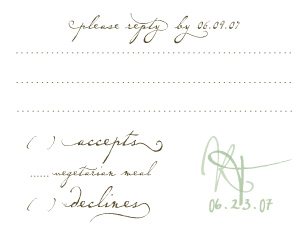 please reply by 06.09.07
( ) accepts
...... vegetarian meal
( ) declines
06.23.07